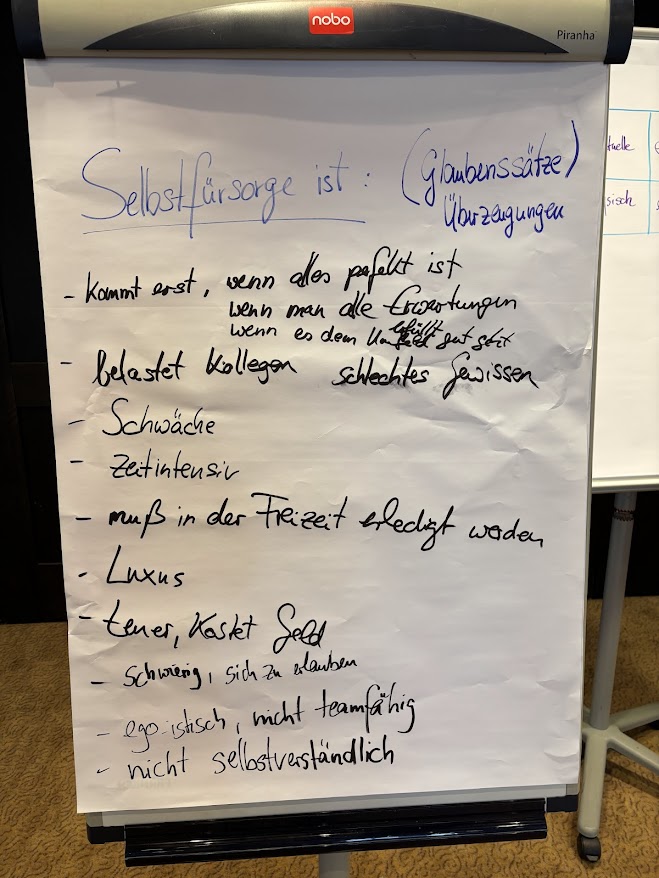 nobo
Piranha
Selbstfürsorge ist : (Glaubenssätze)
Überzeugungen
- kommt erst, wenn alles perfekt ist
wenn man alle Erwartungen
erfüllt
wenn es dem Umfeld gut geht
- belastet Kollegen schlechtes Gewissen
- Schwäche
- zeitintensiv
- muß in der Freizeit erledigt werden
- Luxus
- teuer, kostet Geld
- schwierig, sich zu erlauben
- ego-istisch, nicht teamfähig
- nicht selbstverständlich